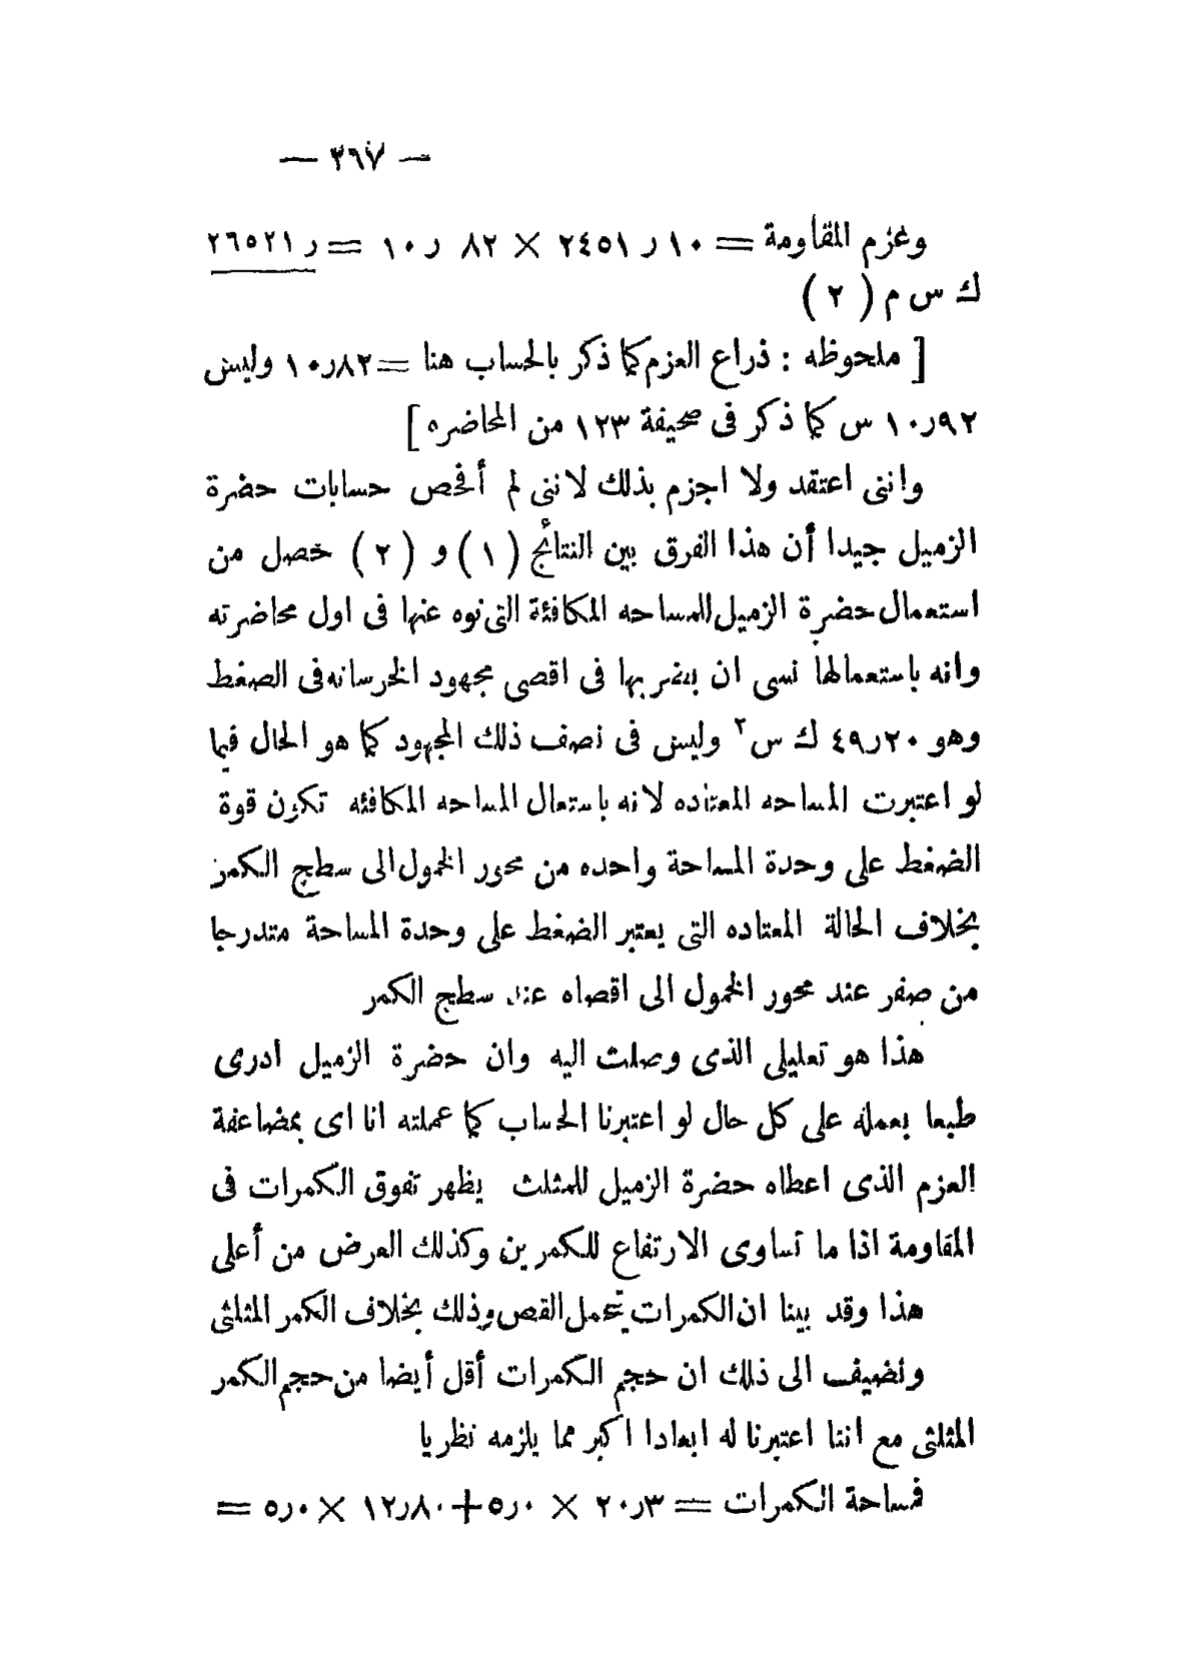 — ٣٦٧ —
وعزم المقاومة = ١٠ ر ٢٤٥١ × ٨٢ ر ١٠ = ر ٢٦٥٢١
ك س م ( ٢ )
[ ملحوظه : ذراع العزم كما ذكر بالحساب هنا = ١٠ر٨٢ وليس
١٠ر٩٢ س كما ذكر فى صحيفة ١٢٣ من المحاضره ]
واننى اعتقد ولا اجزم بذلك لاننى لم أفحص حسابات حضرة
الزميل جيدا أن هذا الفرق بين النتائج ( ١ ) و ( ٢ ) حصل من
استعمال حضرة الزميل للمساحه المكافئة التى نوه عنها فى اول محاضرته
وانه باستعمالها نسى ان يضربها فى اقصى مجهود الخرسانه فى الضغط
وهو ٤٩ر٢٠ ك س٢ وليس فى نصف ذلك المجهود كما هو الحال فيما
لو اعتبرت المساحه المعتاده لانه باستعمال المساحه المكافئه تكون قوة
الضغط على وحدة المساحة واحده من محور الخمول الى سطح الكمر
بخلاف الحالة المعتاده التى يعتبر الضغط على وحدة المساحة متدرجا
من صفر عند محور الخمول الى اقصاه عند سطح الكمر
هذا هو تعليلى الذى وصلت اليه وان حضرة الزميل ادرى
طبعا بعمله على كل حال لو اعتبرنا الحساب كما عملته انا اى بمضاعفة
العزم الذى اعطاه حضرة الزميل للمثلث يظهر تفوق الكمرات فى
المقاومة اذا ما تساوى الارتفاع للكمرين وكذلك العرض من أعلى
هذا وقد بينا ان الكمرات تتحمل القص وذلك بخلاف الكمر المثلثى
ونضيف الى ذلك ان حجم الكمرات أقل أيضا من حجم الكمر
المثلثى مع اننا اعتبرنا له ابعادا اكبر مما يلزمه نظريا
فمساحة الكمرات = ٢٠ر٣ × ٥ر٠ + ١٢ر٨٠ × ٥ر٠ =